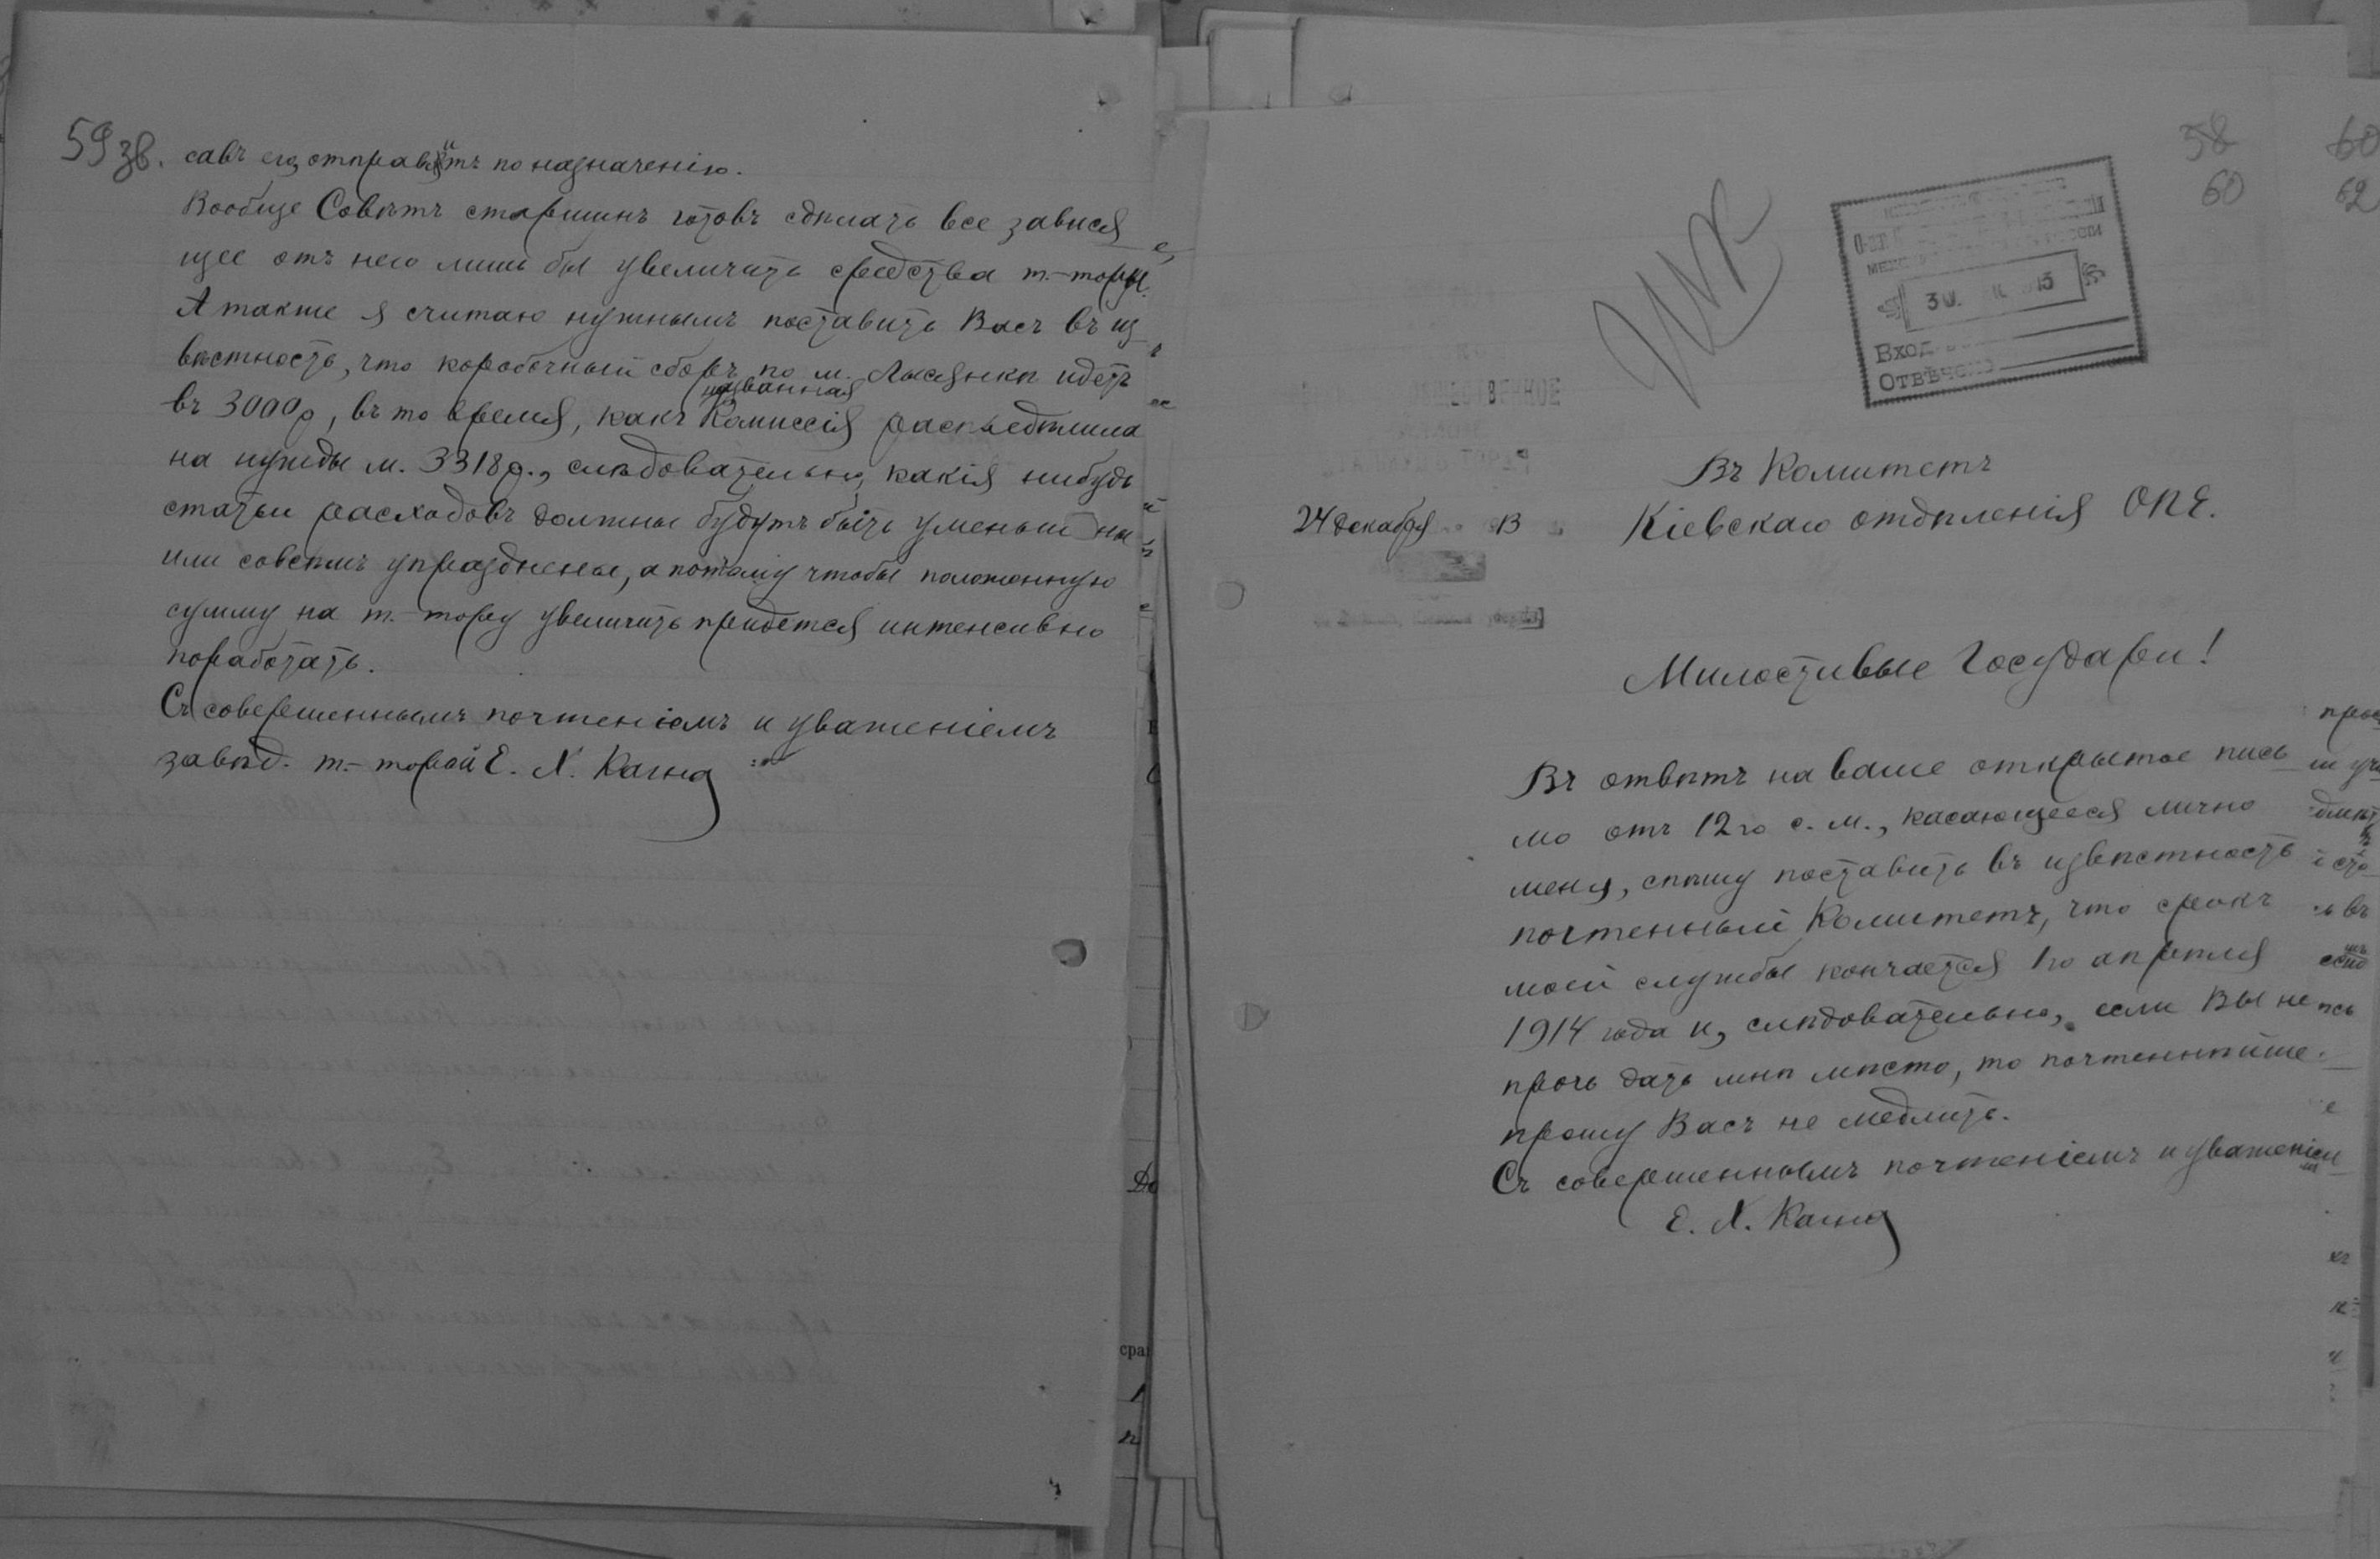 59 зв.
савъ его, отправитъ по назначенію.
Вообще Совѣтъ старшинъ готовъ сдѣлать все завися
щее отъ него лишь бы увеличить средства т.-торы.
А также я считаю нужнымъ поставить Васъ въ из
вѣстность, что коробочный сборъ по м. Лысянкѣ идетъ
въ 3000 р, въ то время, какъ названная Комиссія распредѣлила
на нужды м. 3318 р., слѣдовательно, какія нибудь
статьи расходовъ должны будутъ быть уменьш ны
или совсѣмъ упразднены, а потому чтобы положенную
сумму на т.-тору увеличить придется интенсивно
поработать.
Съ совершеннымъ почтеніемъ и уваженіемъ
завѣд. т.-торой Е. Х. Кагна
58 60
60 62
30. 13
Вход
Отвѣчено
Въ Комитетъ
24 декабря 13 Кіевскаго отдѣленія ОПЕ.
Милостивые Государи!
Въ отвѣтъ на ваше открытое пись
мо отъ 12го с. м., касающееся лично
меня, спѣшу поставить въ извѣстность
почтенный Комитетъ, что срокъ
моей службы кончается 1го апрѣля
1914 года и, слѣдовательно, если Вы не
прочь дать мнѣ мѣсто, то почтеннѣйше
прошу Васъ не медлить.
Съ совершеннымъ почтеніемъ и уваженіем
Е. Х. Кагна